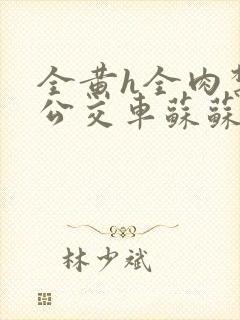 全黄h全肉
公交车蘇蘇
林少斌